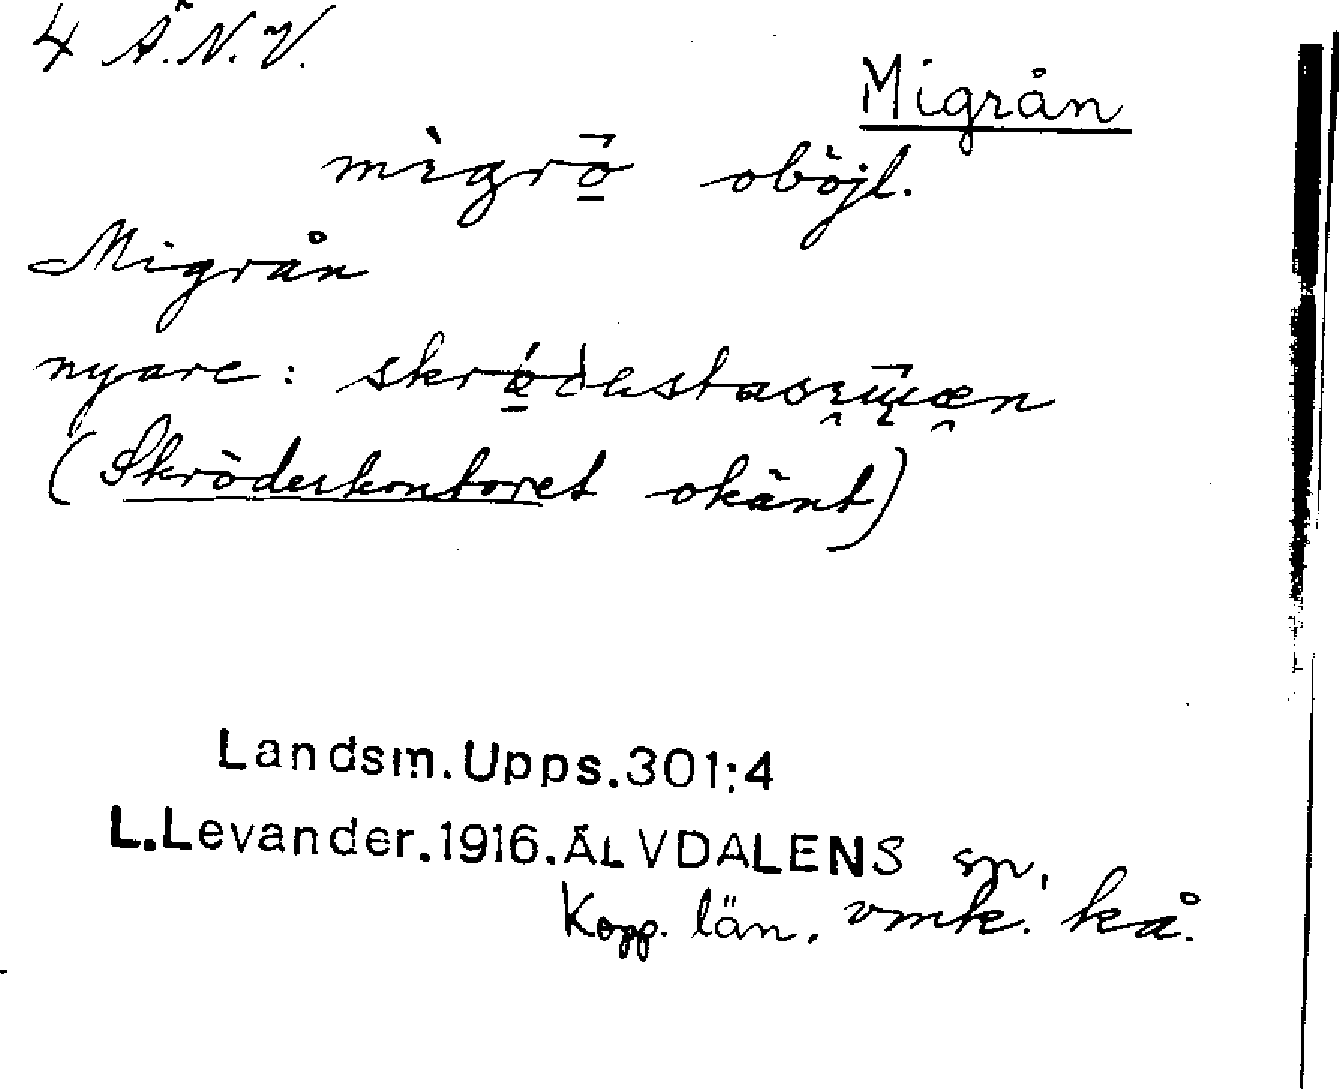 4 Ä.N.V.
Migrån
mìgrō̱ oböjl.
Migrån
nyare:
(Skröderkontoret okänt)
Landsm.Upps.301:4
L.Levander.1916.ÄLVDALENS sn,
Kopp. län. vmk. kå.